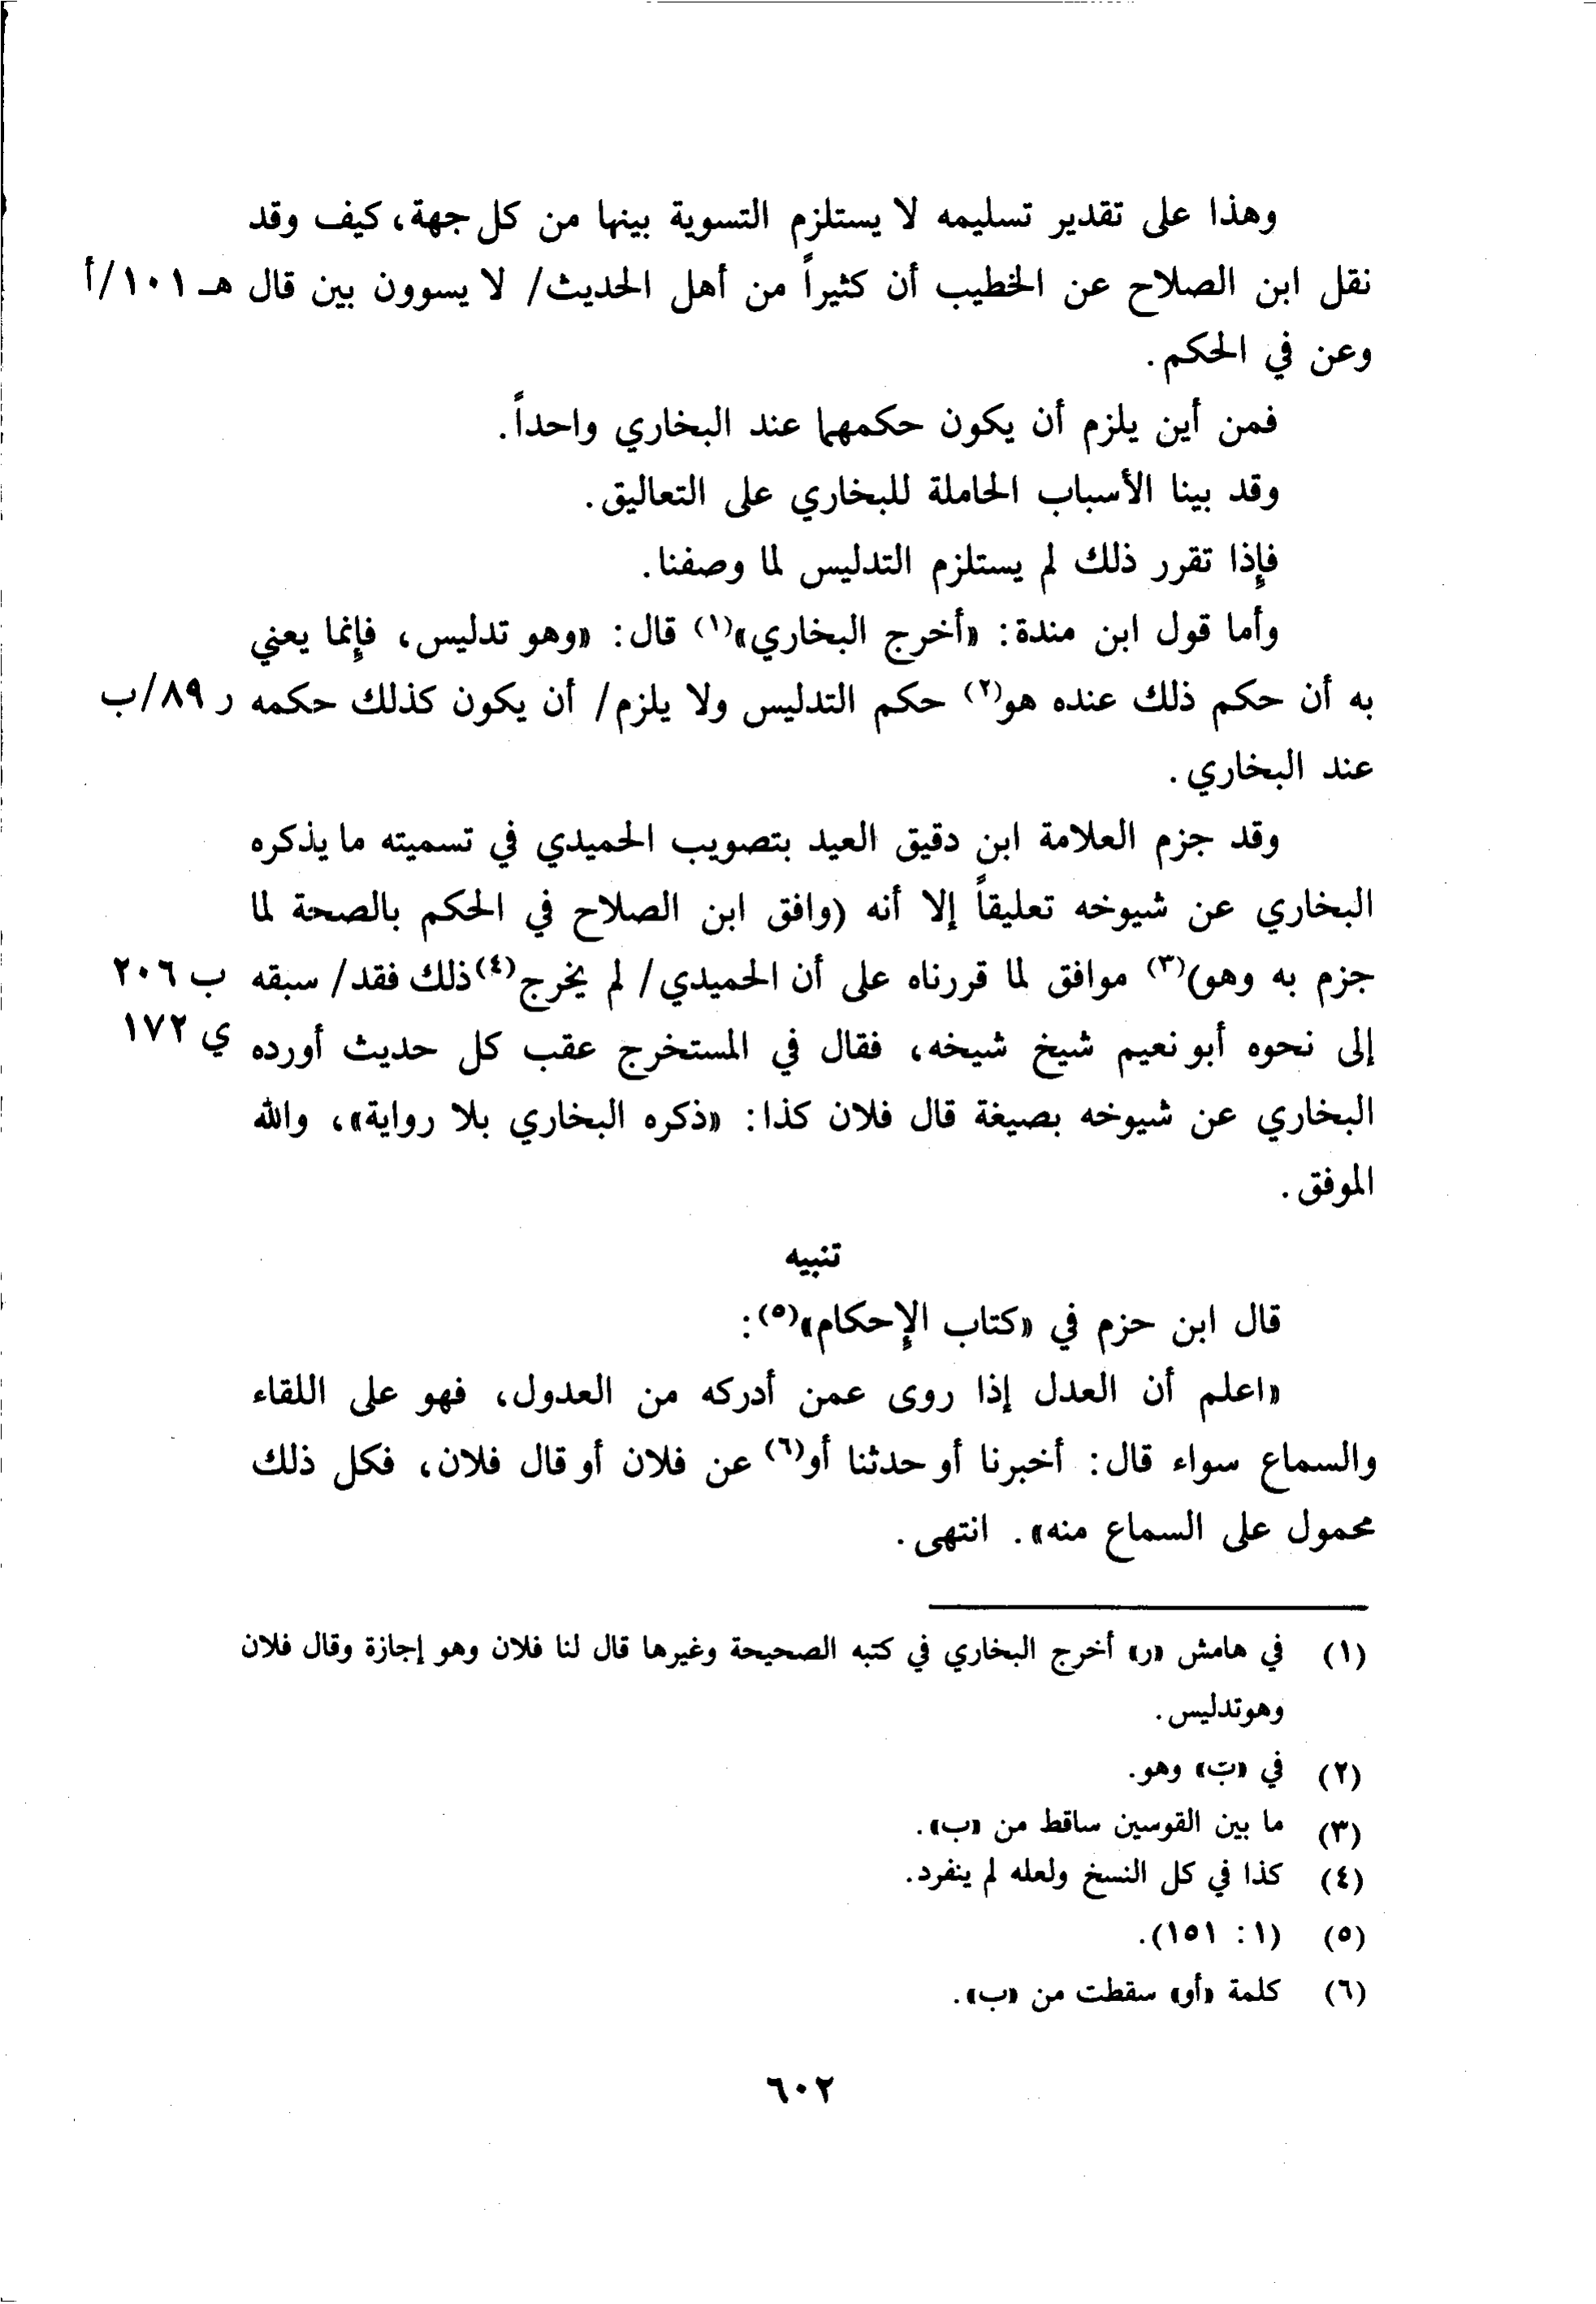 وهذا على تقدير تسليمه لا يستلزم التسوية بينها من كل جهة، كيف وقد
نقل ابن الصلاح عن الخطيب أن كثيراً من أهل الحديث/ لا يسوون بين قال هـ ١٠١/أ
وعن في الحكم.
فمن أين يلزم أن يكون حكمهما عند البخاري واحداً.
وقد بينا الأسباب الحاملة للبخاري على التعاليق.
فإذا تقرر ذلك لم يستلزم التدليس لما وصفنا.
وأما قول ابن مندة: «أخرج البخاري»(١) قال: «وهو تدليس، فإنما يعني
به أن حكم ذلك عنده هو(٢) حكم التدليس ولا يلزم/ أن يكون كذلك حكمه ر ٨٩/ب
عند البخاري.
وقد جزم العلامة ابن دقيق العيد بتصويب الحميدي في تسميته ما يذكره
البخاري عن شيوخه تعليقاً إلا أنه (وافق ابن الصلاح في الحكم بالصحة لما
جزم به وهو)(٣) موافق لما قررناه على أن الحميدي/ لم يخرج(٤) ذلك فقد/ سبقه ب ٢٠٦
إلى نحوه أبو نعيم شيخ شيخه، فقال في المستخرج عقب كل حديث أورده ي ١٧٢
البخاري عن شيوخه بصيغة قال فلان كذا: «ذكره البخاري بلا رواية»، والله
الموفق.
تنبيه
قال ابن حزم في «كتاب الإحكام»(٥):
«اعلم أن العدل إذا روى عمن أدركه من العدول، فهو على اللقاء
والسماع سواء قال: أخبرنا أو حدثنا أو(٦) عن فلان أو قال فلان، فكل ذلك
محمول على السماع منه». انتهى.
(١) في هامش «ر» أخرج البخاري في كتبه الصحيحة وغيرها قال لنا فلان وهو إجازة وقال فلان
وهو تدليس.
(٢) في «ب» وهو.
(٣) ما بين القوسين ساقط من «ب».
(٤) كذا في كل النسخ ولعله لم ينفرد.
(٥) (١: ١٥١).
(٦) كلمة «أو» سقطت من «ب».
٦٠٢